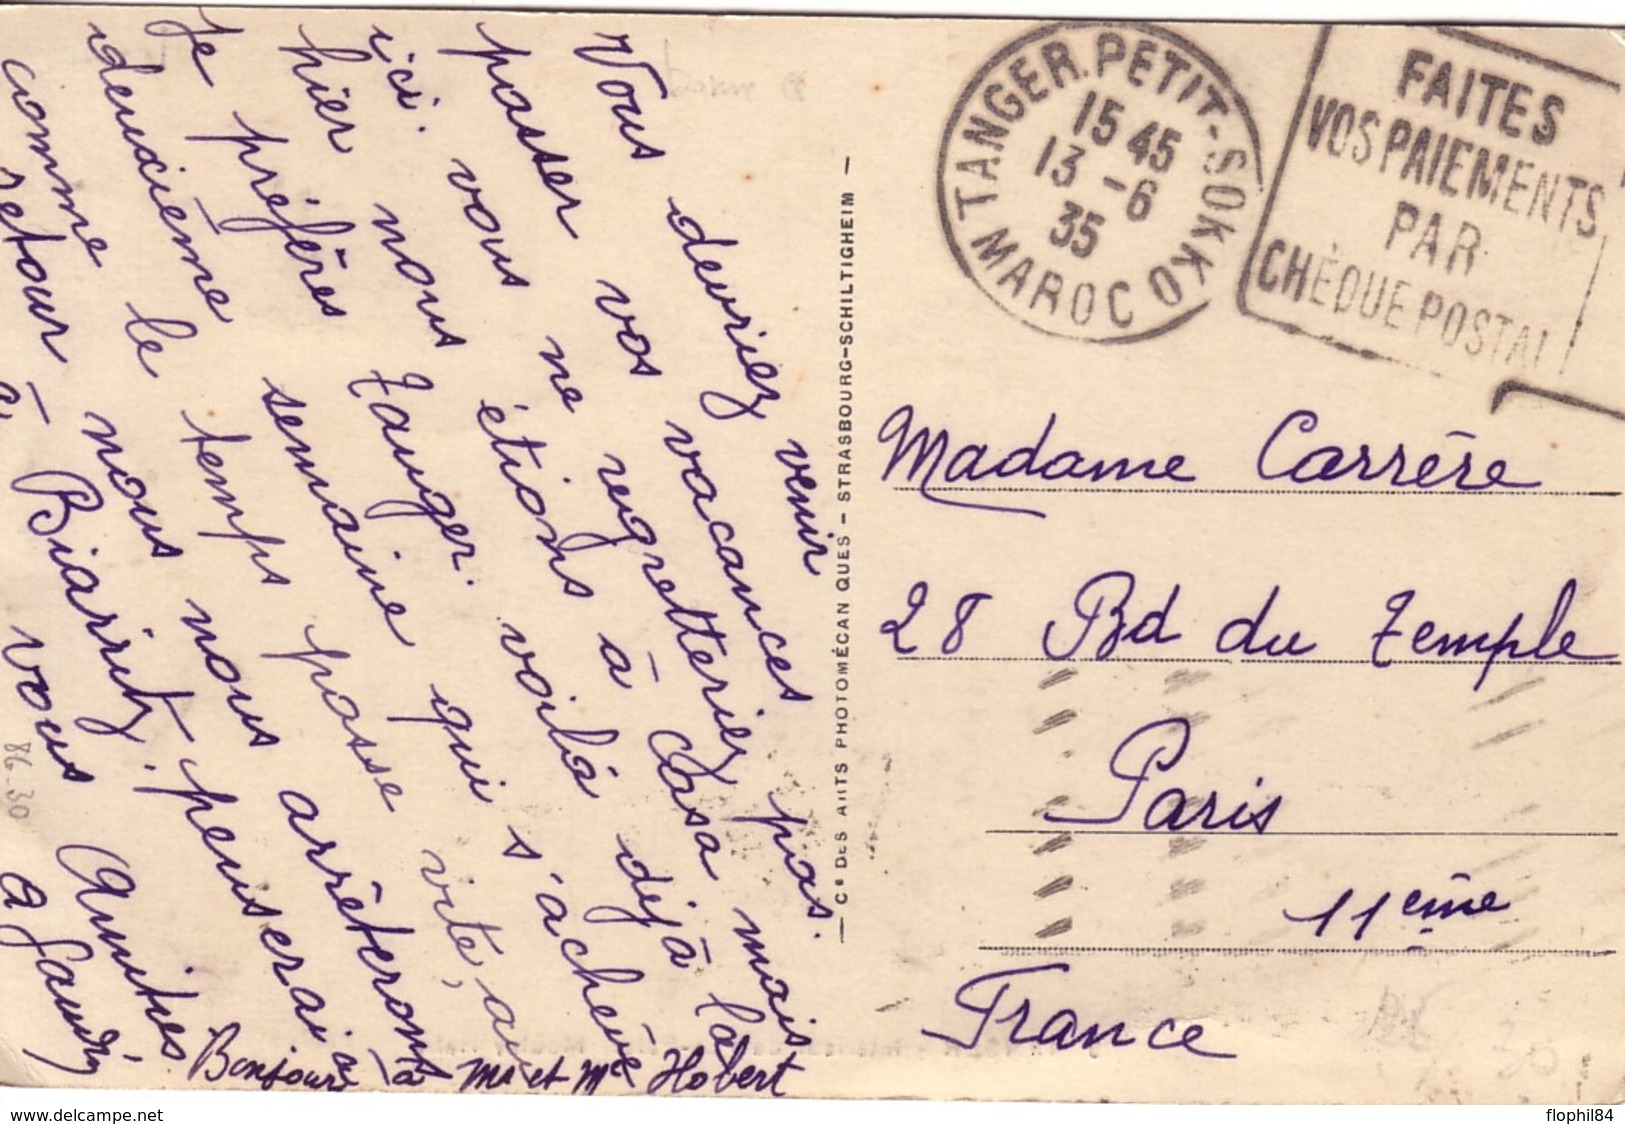 Vous devriez venir
passer vos vacances
ici. vous ne regretteriez pas.
hier nous étions à Casa mais
je préfères Tanger. voilà déjà la
deuxième semaine qui s'achève
comme le temps passe vite, au
retour nous nous arrêterons à
à Biarritz.
vous
Amities
Bonjour à Mr et Mme Hobert
TANGER.PETIT-SOKKO
MAROC
15 45
13 -6
35
FAITES
VOS PAIEMENTS
PAR
CHÈQUE POSTAL
— Cie DES ARTS PHOTOMÉCANIQUES – STRASBOURG-SCHILTIGHEIM —
Madame Carrère
28 Bd du Temple
Paris
11ème
France
86-30
30
flophil84